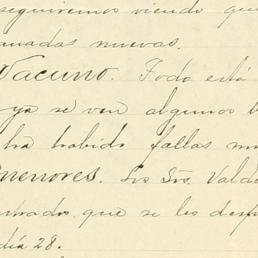 seguiremos viendo que
anadas nuevas.
Vacuno. Todo está
ya se ven algunos
ha habido fallas
menores. Los Srs. Vald
que se les desp
día 28.